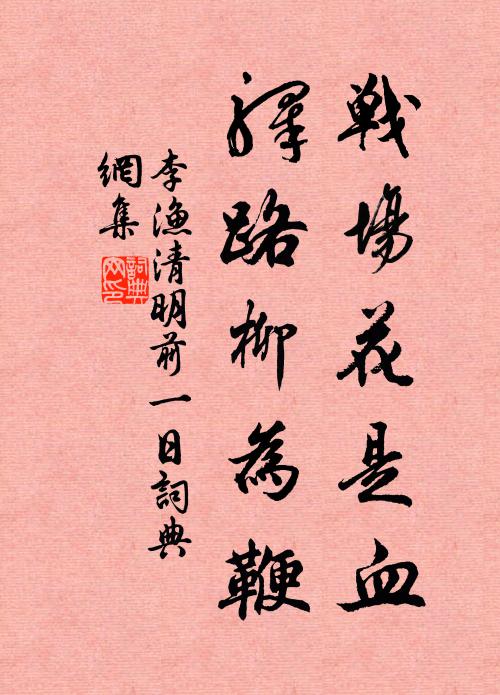 戰場花是血
驛路柳為鞭
李漁清明前一日詞典
網集
詞典網印